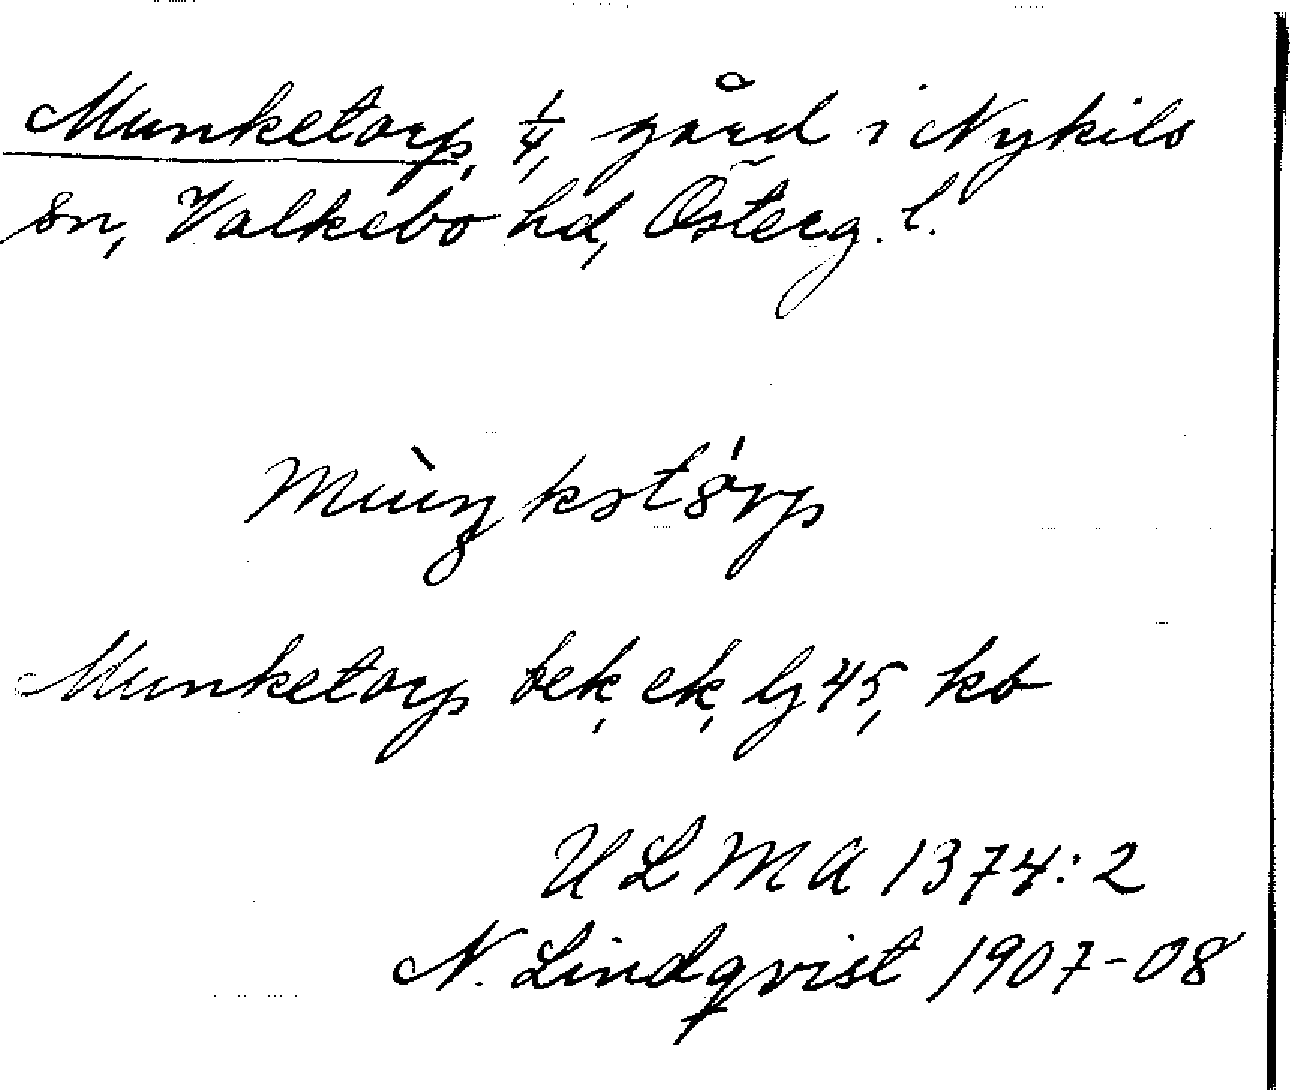 Munketorp, 1/4, gård i Nykils
sn, Valkebo hd, Österg. l.
Mùŋkət8́rp
Munketorp bek, ek, lj 45, kb
ULMA 1374:2
N. Lindqvist 1907-08